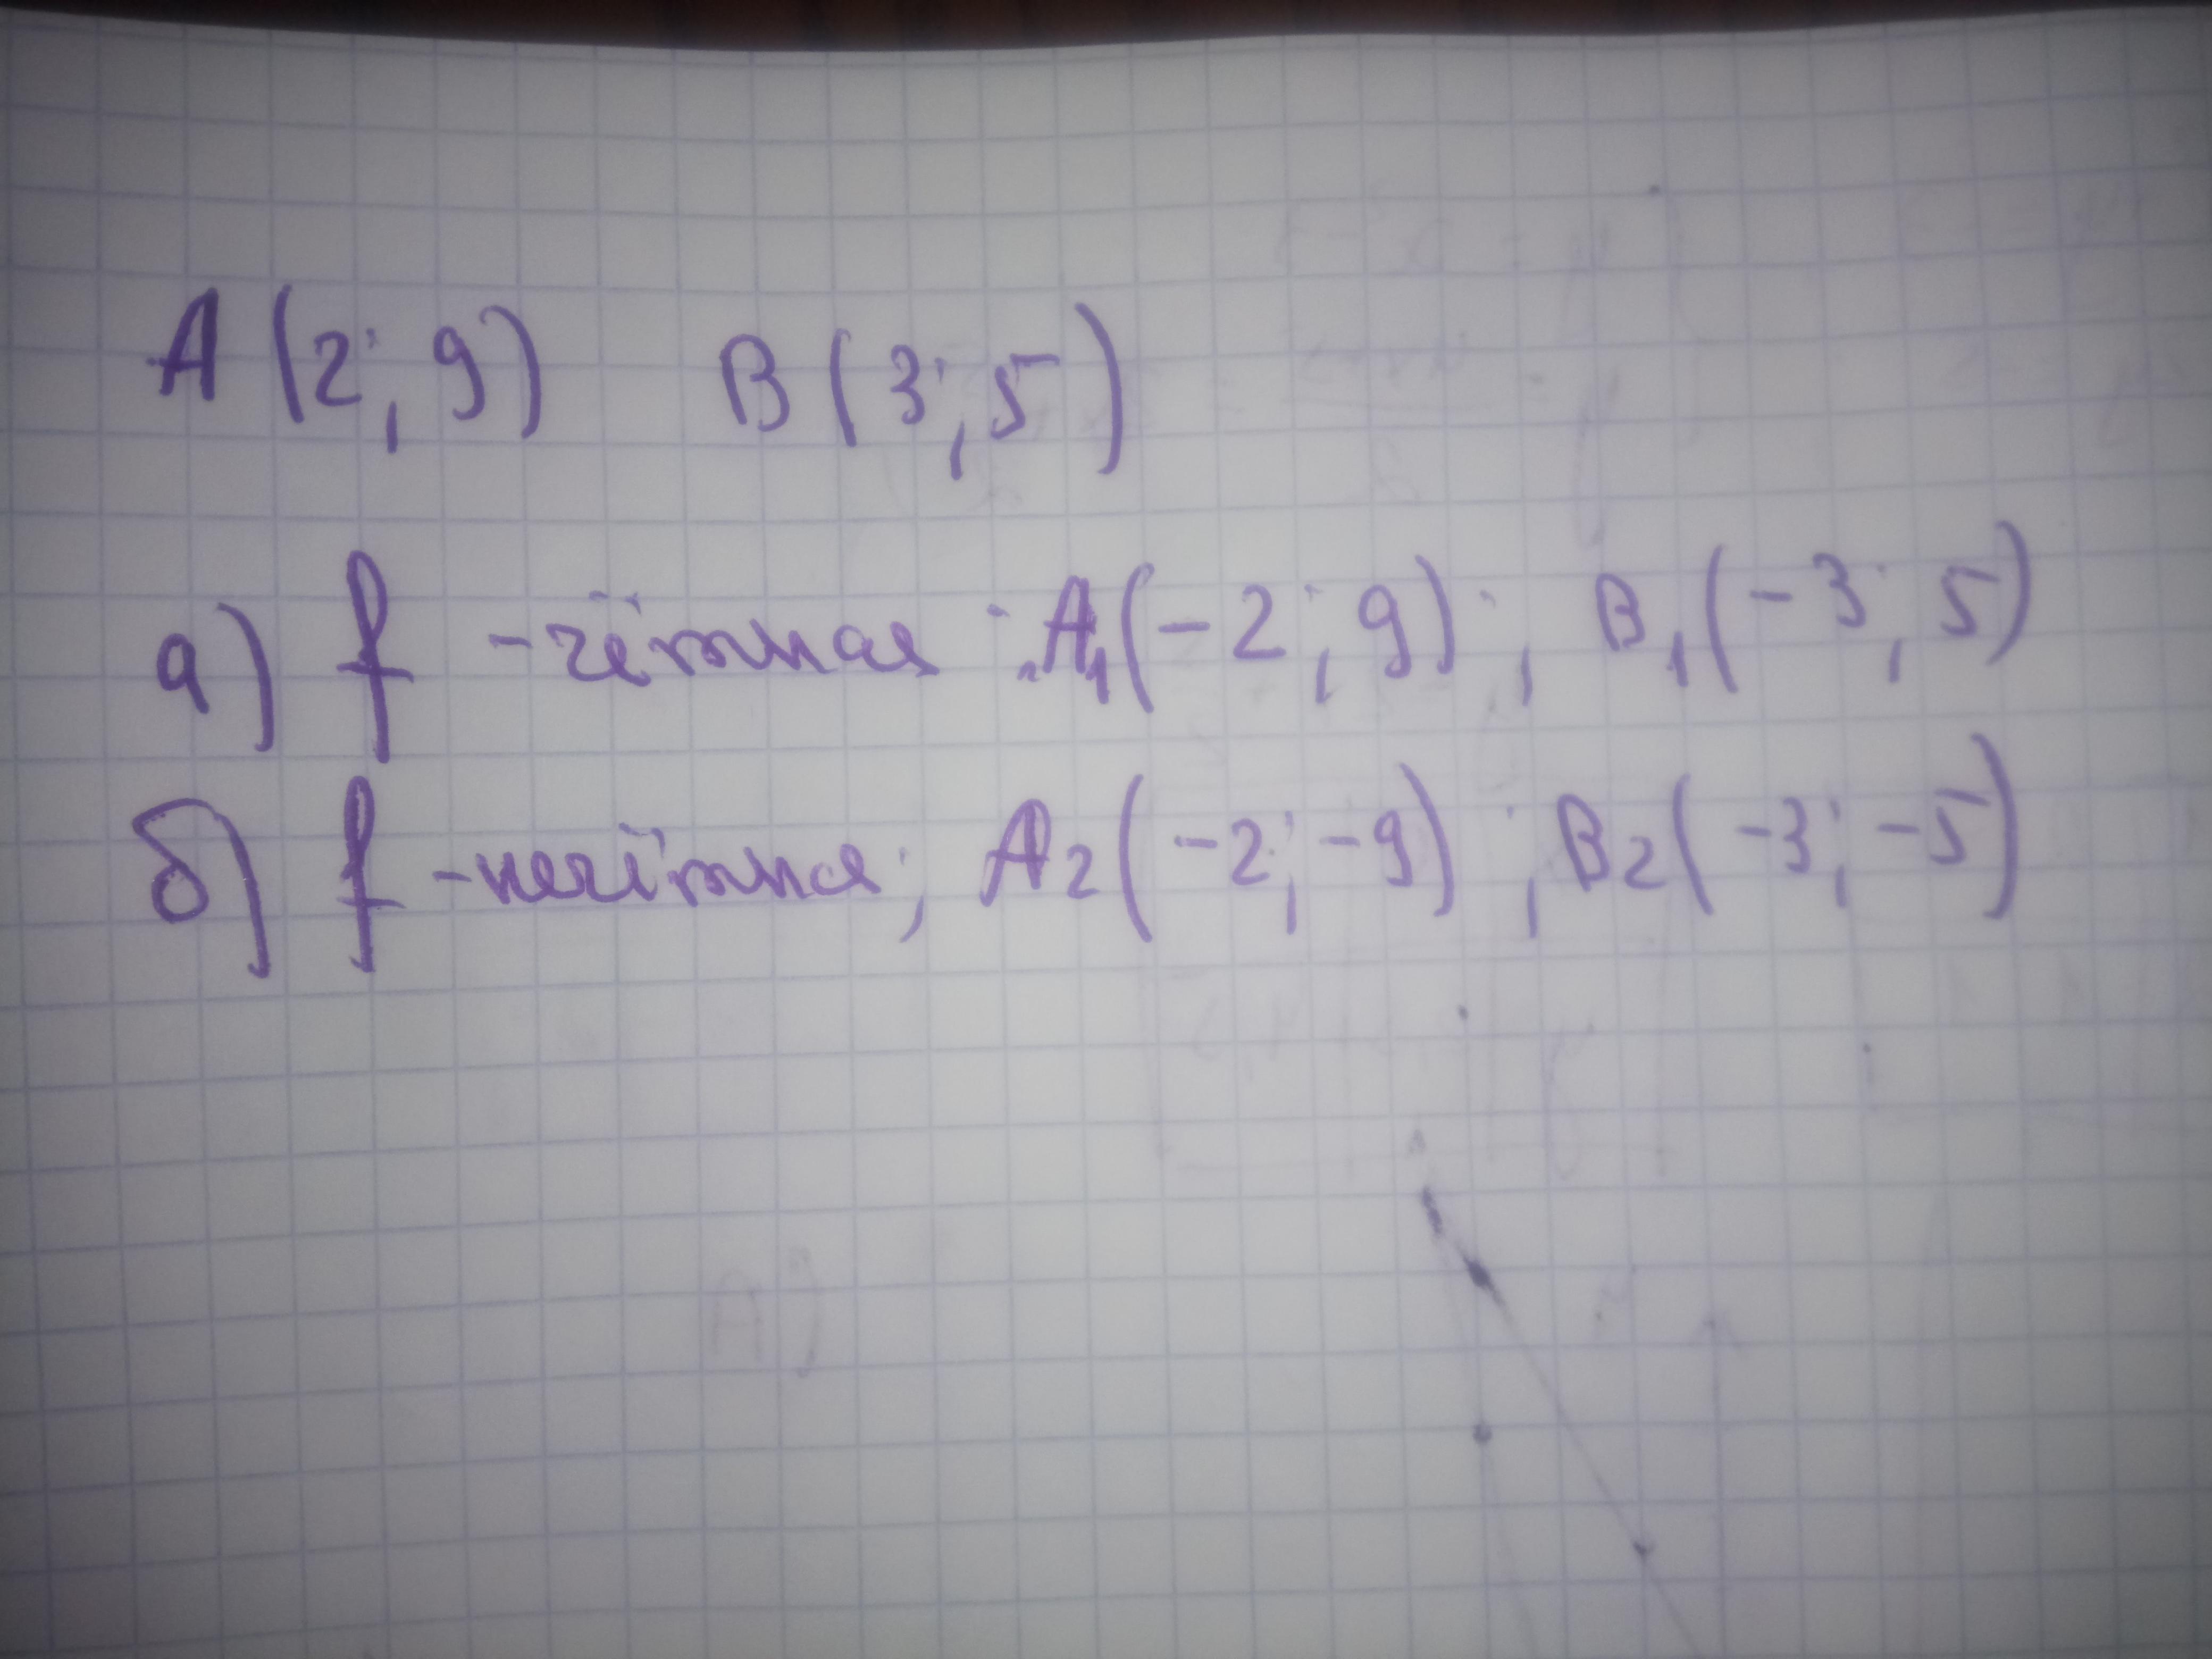 A(2; 9) B(3; 5)
а) f -чётная: A1(-2; 9); B1(-3; 5)
б) f -нечётная; A2(-2; -9); B2(-3; -5)